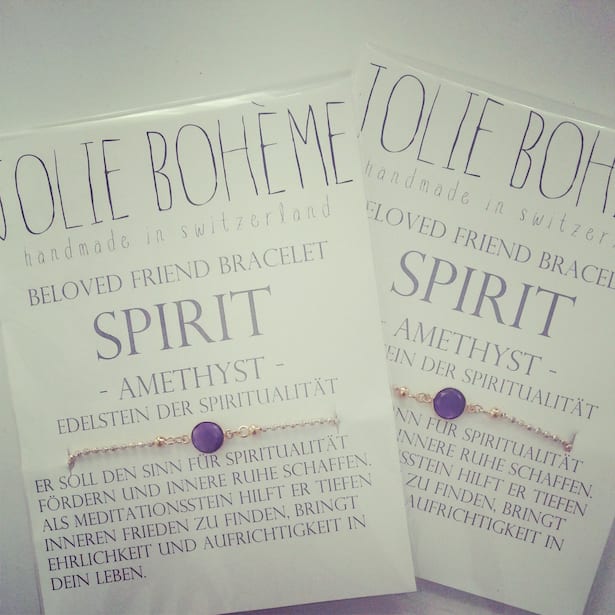 JOLIE BOHÈME
handmade in switzerland
BELOVED FRIEND BRACELET
SPIRIT
- AMETHYST -
EDELSTEIN DER SPIRITUALITÄT
ER SOLL DEN SINN FÜR SPIRITUALITÄT
FÖRDERN UND INNERE RUHE SCHAFFEN.
ALS MEDITATIONSSTEIN HILFT ER TIEFEN
INNEREN FRIEDEN ZU FINDEN, BRINGT
EHRLICHKEIT UND AUFRICHTIGKEIT IN
DEIN LEBEN.
JOLIE BOH
handmade in switzer
BELOVED FRIEND BRACEL
SPIRIT
- AMETHYST -
STEIN DER SPIRITUALITÄT
INN FÜR SPIRITUALITÄT
INNERE RUHE SCHAFFEN.
SSTEIN HILFT ER TIEFEN
ZU FINDEN, BRINGT
AUFRICHTIGKEIT IN